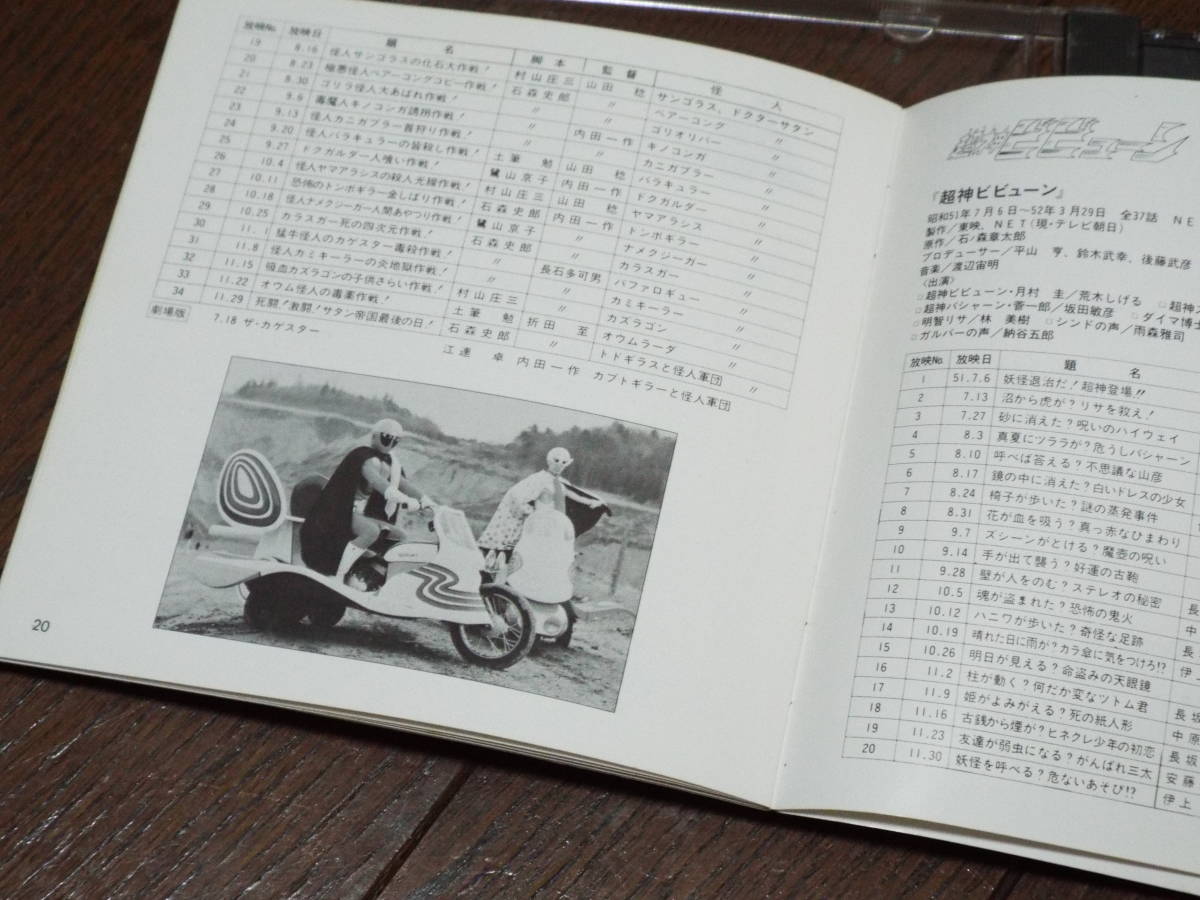 放映No. 放映日 題名 脚本 監督 怪人
19 8.16 怪人サンゴラスの化石大作戦! 村山庄三 山田 稔 サンゴラス、ドクターサタン
20 8.23 極悪怪人ベアーコングコピー作戦! 石森史郎 〃 ベアーコング 〃
21 8.30 ゴリラ怪人大あばれ作戦! 〃 〃 ゴリオリバー 〃
22 9.6 毒魔人キノコンガ誘拐作戦! 〃 内田一作 キノコンガ 〃
23 9.13 怪人カニガブラー首狩り作戦! 〃 〃 カニガブラー 〃
24 9.20 怪人バラキュラーの皆殺し作戦! 土筆 勉 山田 稔 バラキュラー 〃
25 9.27 ドクガルダー人喰い作戦! 鷺山京子 内田一作 ドクガルダー 〃
26 10.4 怪人ヤマアラシスの殺人光線作戦! 村山庄三 山田 稔 ヤマアラシス 〃
27 10.11 恐怖のトンボギラー金しばり作戦! 石森史郎 内田一作 トンボギラー 〃
28 10.18 怪人ナメクジーガー人間あやつり作戦! 鷺山京子 〃 ナメクジーガー 〃
29 10.25 カラスガー死の四次元作戦! 石森史郎 〃 カラスガー 〃
30 11.1 猛牛怪人のカゲスター毒殺作戦! 〃 長石多可男 バファロギュー 〃
31 11.8 怪人カミキーラーの炎地獄作戦! 〃 〃 カミキーラー 〃
32 11.15 吸血カズラゴンの子供さらい作戦! 村山庄三 〃 カズラゴン 〃
33 11.22 オウム怪人の毒薬作戦! 土筆 勉 折田 至 オウムラーダ 〃
34 11.29 死闘!激闘!サタン帝国最後の日! 石森史郎 〃 トドギラスと怪人軍団 〃
劇場版 7.18 ザ・カゲスター 江連 卓 内田一作 カブトギラーと怪人軍団
20
超神ビビューン
『超神ビビューン』
昭和51年7月6日~52年3月29日 全37話 NE
製作/東映、NET(現・テレビ朝日)
原作/石ノ森章太郎
プロデューサー/平山 亨、鈴木武幸、後藤武彦
音楽/渡辺宙明
〈出演〉
□超神ビビューン・月村 圭/荒木しげる □超神ス
□超神バシャーン・菅一郎/坂田敏彦 □ダイマ博士
□明智リサ/林 美樹 □シンドの声/雨森雅司
□ガルバーの声/納谷五郎
放映No. 放映日 題名
1 51.7.6 妖怪退治だ!超神登場!!
2 7.13 沼から虎が?リサを救え!
3 7.27 砂に消えた?呪いのハイウェイ
4 8.3 真夏にツララが?危うしバシャーン
5 8.10 呼べば答える?不思議な山彦
6 8.17 鏡の中に消えた?白いドレスの少女
7 8.24 椅子が歩いた?謎の蒸発事件
8 8.31 花が血を吸う?真っ赤なひまわり
9 9.7 ズシーンがとける?魔壺の呪い
10 9.14 手が出て襲う?好運の古鞄
11 9.28 壁が人をのむ?ステレオの秘密
12 10.5 魂が盗まれた?恐怖の鬼火 長
13 10.12 ハニワが歩いた?奇怪な足跡 中
14 10.19 晴れた日に雨が?カラ傘に気をつけろ!? 長
15 10.26 明日が見える?命盗みの天眼鏡 伊
16 11.2 柱が動く?何だか変なツトム君
17 11.9 姫がよみがえる?死の紙人形 長坂
18 11.16 古銭から煙が?ヒネクレ少年の初恋 中原
19 11.23 友達が弱虫になる?がんばれ三太 長坂
20 11.30 妖怪を呼べる?危ないあそび!? 安藤
伊上